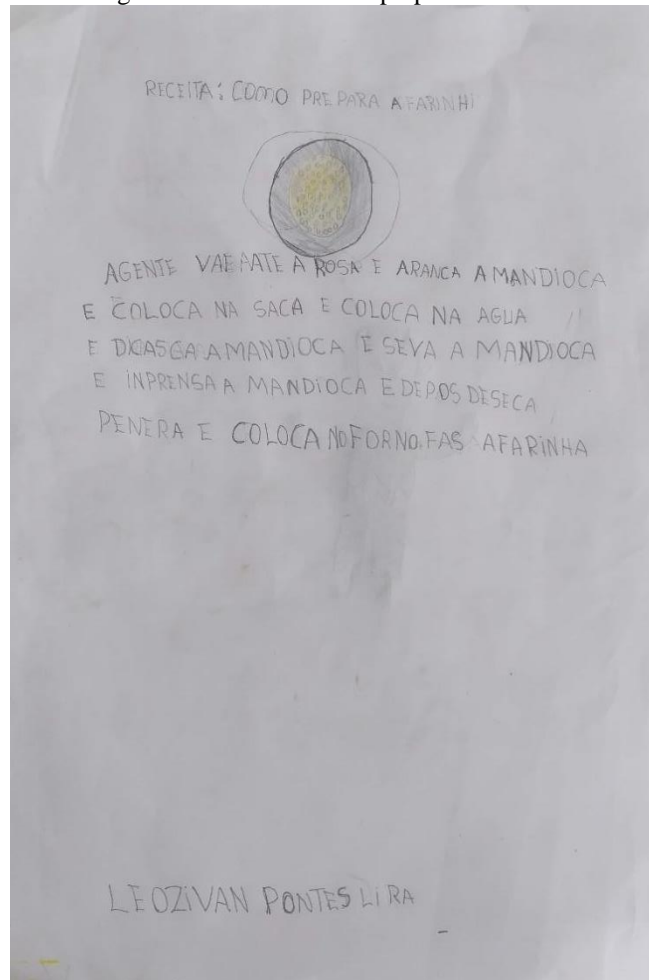 RECEITA: COMO PREPARA A FARINHI
AGENTE VAE AATE A ROSA E ARANCA A MANDIOCA
E COLOCA NA SACA E COLOCA NA AGUA
E A MANDIOCA E SEVA A MANDIOCA
E INPRENSA A MANDIOCA E DEPOS DESECA
PENERA E COLOCA NO FORNO. FAS A FARINHA
LEOZIVAN PONTES LIRA